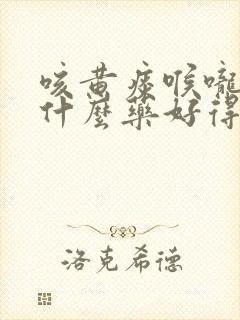 咳黄痰喉嚨
什麼藥好得
洛克希德